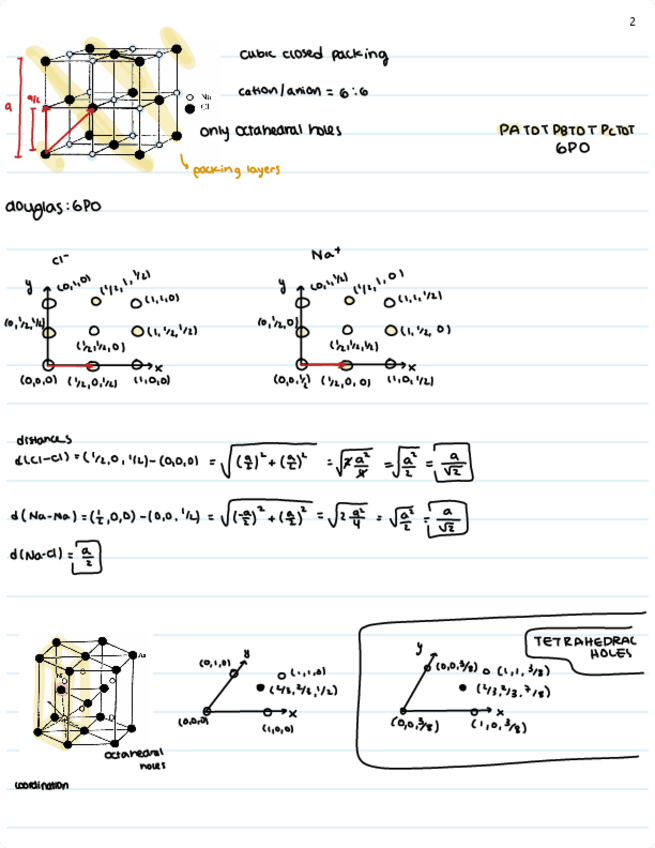 2
cubic closed packing
cation/anion = 6:6
a
a/2
Na
Cl
only octahedral holes
PATOT PBTOT PCTOT
6PO
packing layers
douglas: 6PO
Cl⁻
Na⁺
y
(0,1,0)
(1/2,1,1/2)
(1,1,0)
(0,1/2,1/2)
(1/2,1/2,0)
(1,1/2,1/2)
x
(0,0,0) (1/2,0,1/2) (1,0,0)
y
(0,1,1/2)
(1/2,1,0)
(1,1,1/2)
(0,1/2,0)
(1/2,1/2,1/2)
(1,1/2,0)
x
(0,0,1/2) (1/2,0,0) (1,0,1/2)
distances
d(Cl-Cl) = (1/2,0,1/2)-(0,0,0) = √((a/2)²+(a/2)²) = √(2a²/4) = √(a²/2) = a/√2
d(Na-Na) = (1/2,0,0)-(0,0,1/2) = √((-a/2)²+(a/2)²) = √(2a²/4) = √(a²/2) = a/√2
d(Na-Cl) = a/2
As
octahedral
holes
coordination
y
(0,1,0)
(1,1,0)
(2/3,1/2)
(0,0,0)
x
(1,0,0)
TETRAHEDRAL
HOLES
y
(0,0,3/8)
(1,1,3/8)
7/8)
x
(0,0,3/8)
(1,0,3/8)